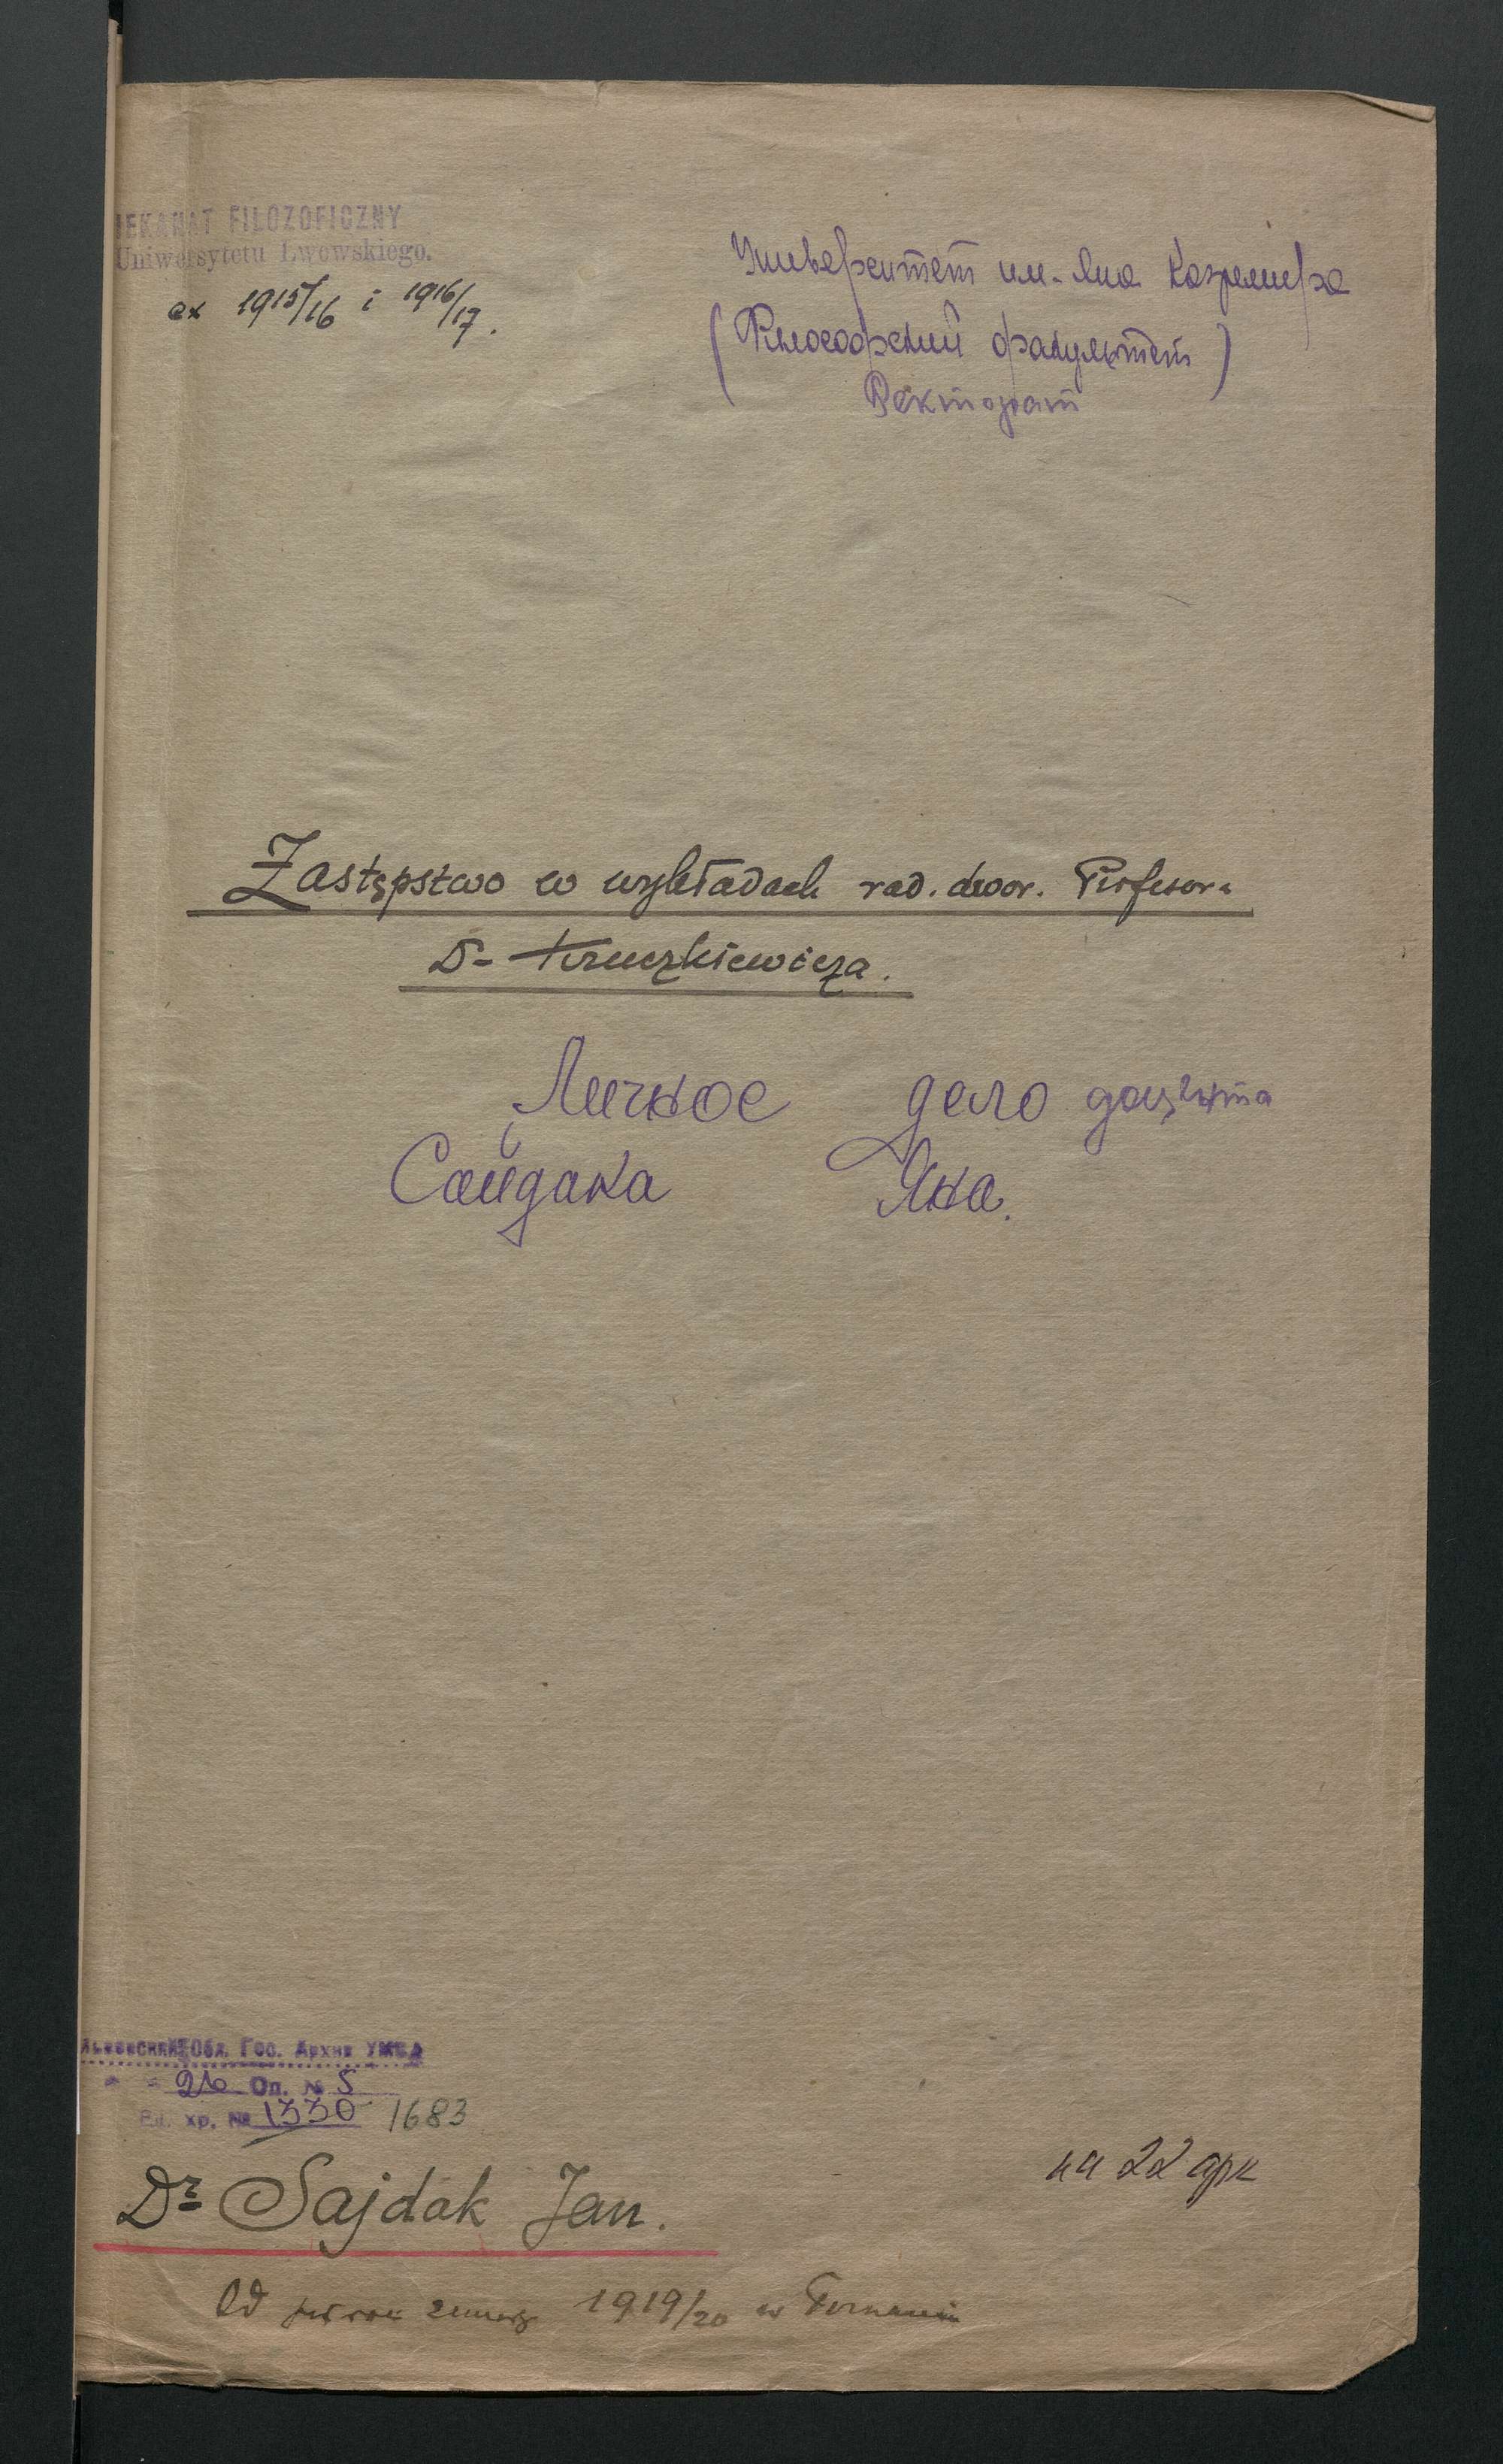 DEKANAT FILOZOFICZNY
Uniwersytetu Lwowskiego.
ex 1915/16 i 1916/17.
Университет им. Яна Казимира
(Философский факультет)
Ректорат
Zastępstwo w wykładach rad. dwor. Profesora
Dr Kruczkiewicza.
Личное дело доцента
Сайдака Яна.
Львовский Обл. Гос. Архив УМВД
26 Оп. № 5
Ед. хр. № 1330 1683
на 22 арк
Dr Sajdak Jan.
Od 1919/20 w Poznaniu